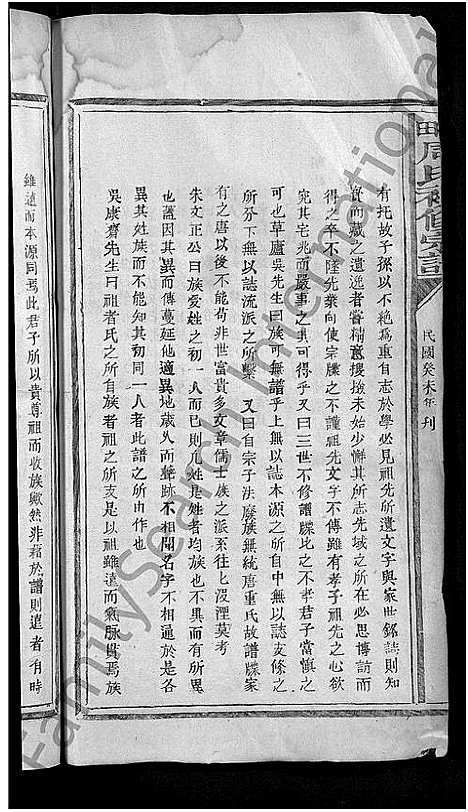 周氏
宗譜
民國癸未年刊
有托故子孫以不絶為重自志於學必見祖先所遺文字與家世銘誌則知
寶而藏之遺逸者嘗精意搜撿未始少懈其所志先域之所在必思博訪而
得之卒不墜先業向使宗牒之不謹祖先文字不傳雖有孝子祖先之心欲
究其宅兆而嚴事之其可得乎又曰三世不修譜牒比之不孝君子當慎之
可也草廬吳先生曰族可無譜乎上無以誌本源之所自中無以誌支條之
所分下無以誌流派之所繫 又曰自宗子法廢族無統唐重氏故譜牒家
有之唐以後不能苟非世富貴多文章儒士族之派系往往沒湮莫考
朱文正公曰族受姓之初一人而已則凡姓是姓者均族也不異而有所異
也蓋因其異而傳蔓延他適異地歲久而聲跡不相聞名字不相通於是各
異其姓族而不能知其初同一人者此譜之所由作也
吳康齋先生曰祖者氏之所自族者祖之所支是以祖雖遠而氣脉貫焉族
雖遠而本源同焉此君子所以貴尊祖而收族歟然非藉於譜則遠者有時
FamilySearch International